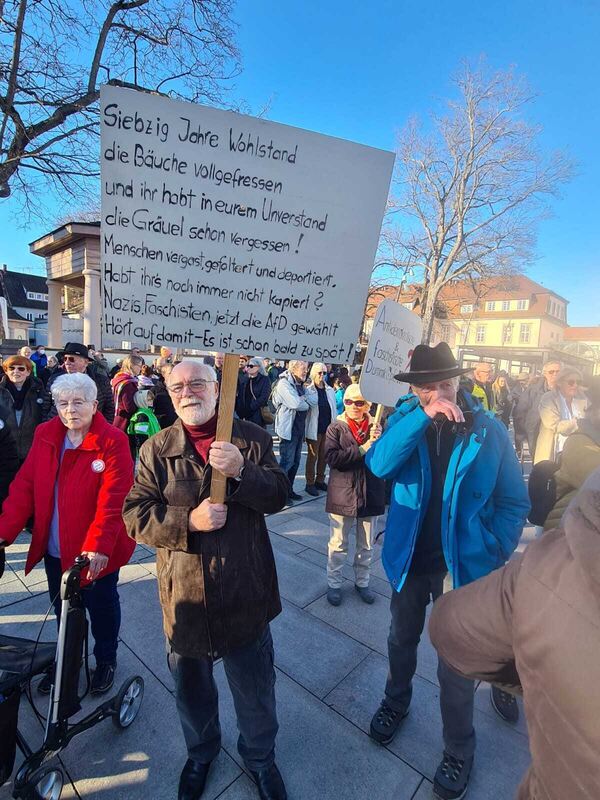 Siebzig Jahre Wohlstand
die Bäuche vollgefressen
und ihr habt in eurem Unverstand
die Gräuel schon vergessen!
Menschen vergast, gefoltert und deportiert.
Habt ihrs noch immer nicht kapiert?
Nazis, Faschisten, jetzt die AfD gewählt
Hört auf damit - Es ist schon bald zu spät!
&
faschistische